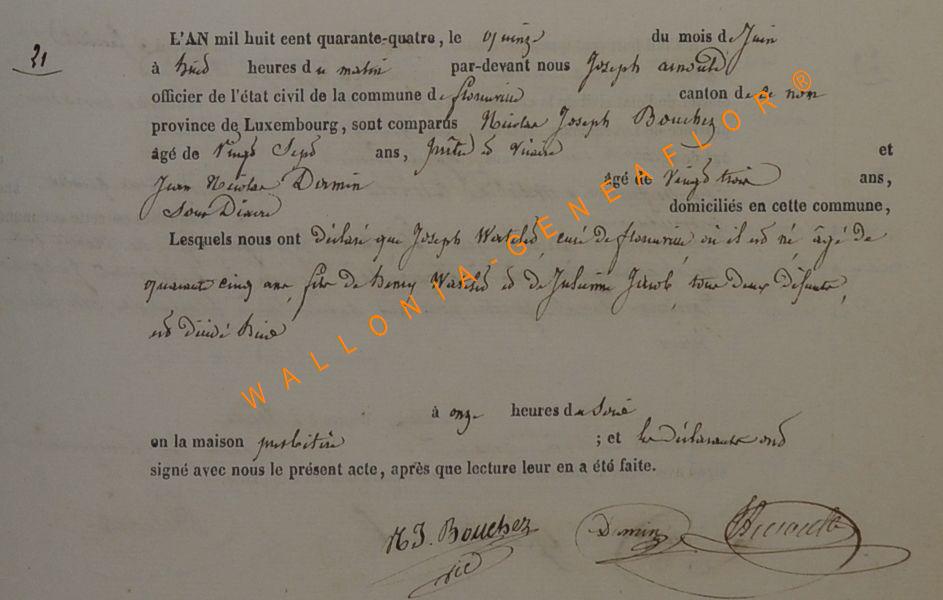 21
L'AN mil huit cent quarante-quatre, le quinze du mois de Juin
à huit heures du matin par-devant nous Joseph arnould
officier de l'état civil de la commune de florenville canton de ce nom
province de Luxembourg, sont comparus Nicolas Joseph Bouchez
âgé de vingt Sept ans, prêtre et vicaire et
Jean Nicolas Dermin âgé de vingt trois ans,
Sous Diacre domiciliés en cette commune,
Lesquels nous ont déclaré que Joseph Watelet, curé de florenville où il est né, âgé de
quarante cinq ans, fils de henry Watelet et de Julienne Jacob, tous deux défunts,
est décédé hier
à onze heures du Soir
en la maison presbitère ; et les déclarants ont
signé avec nous le présent acte, après que lecture leur en a été faite.
N J. Bouchez Dermin
vic
WALLONIA-GENEAFLOR®